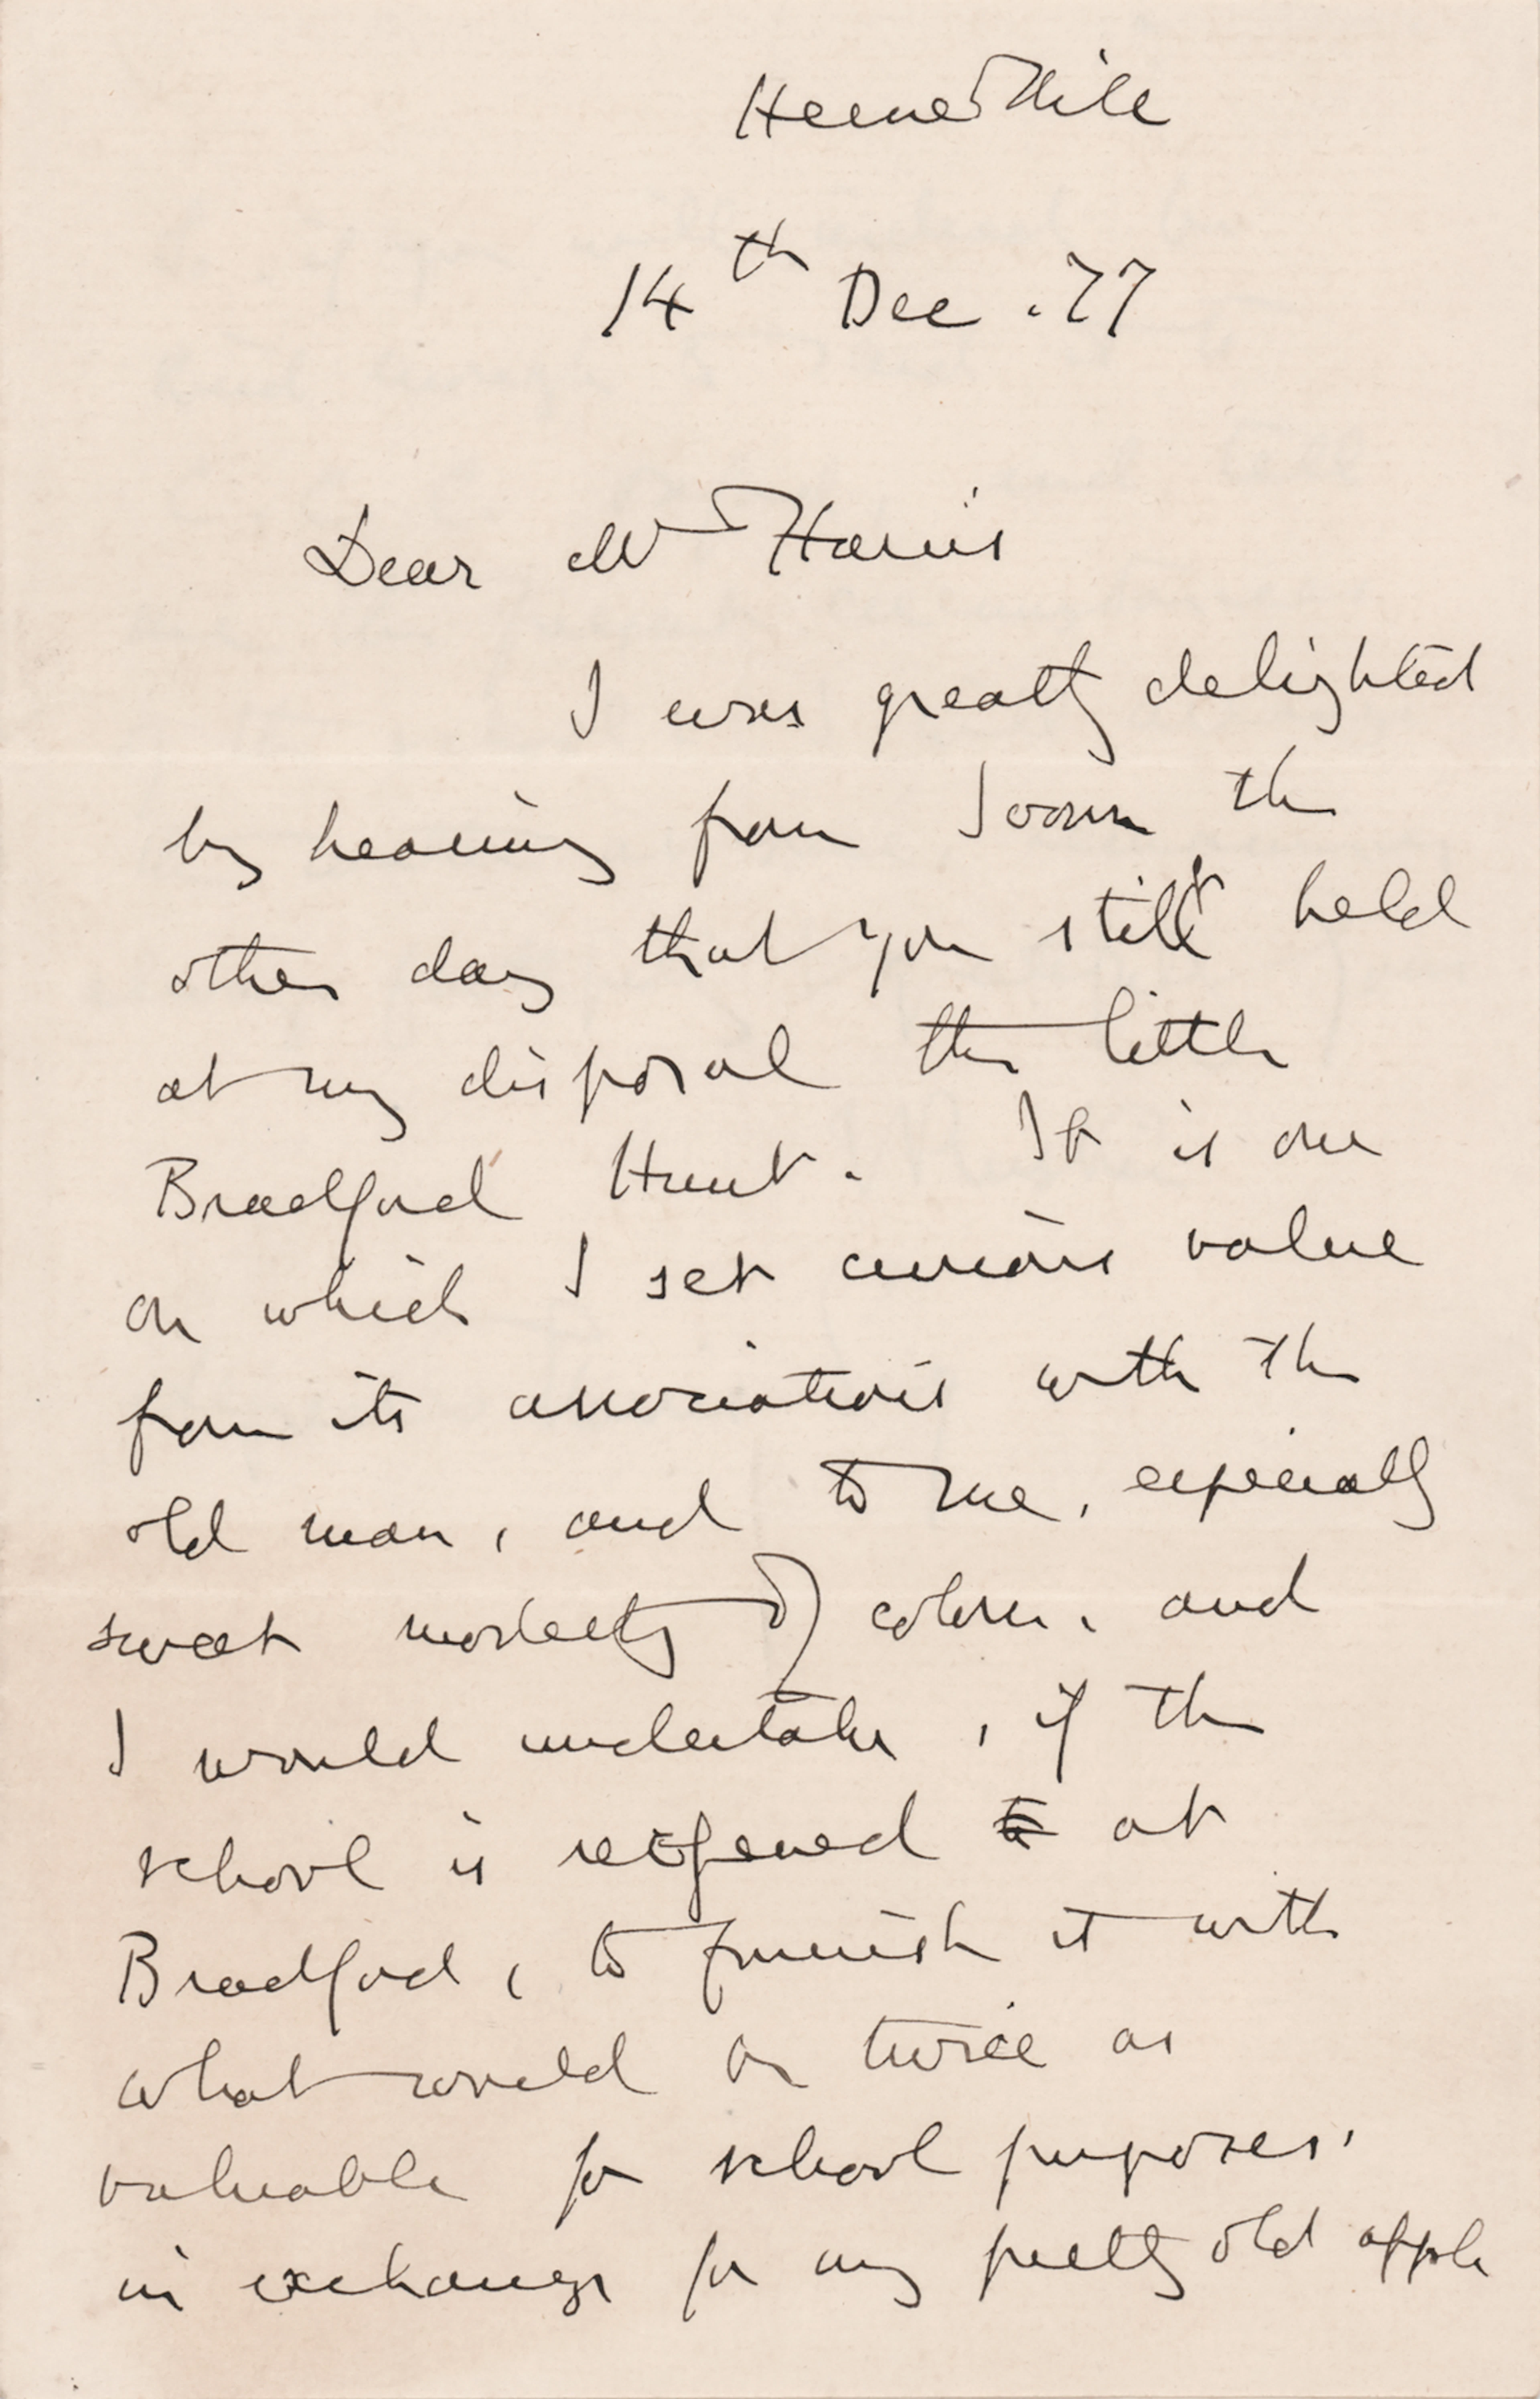 Herne Hill
14th Dec. 77
Dear Mr Harris
I was greatly delighted
by hearing from Swan the
other day that you still held
at my disposal the little
Bradford Hunt. It is one
on which I set curious value
from its associations with the
old man, and to me, especially
sweet modesty of colour, and
I would undertake, if the
school is reopened to at
Bradford, to furnish it with
what would be twice as
valuable for school purposes.
in exchange for my pretty old apple